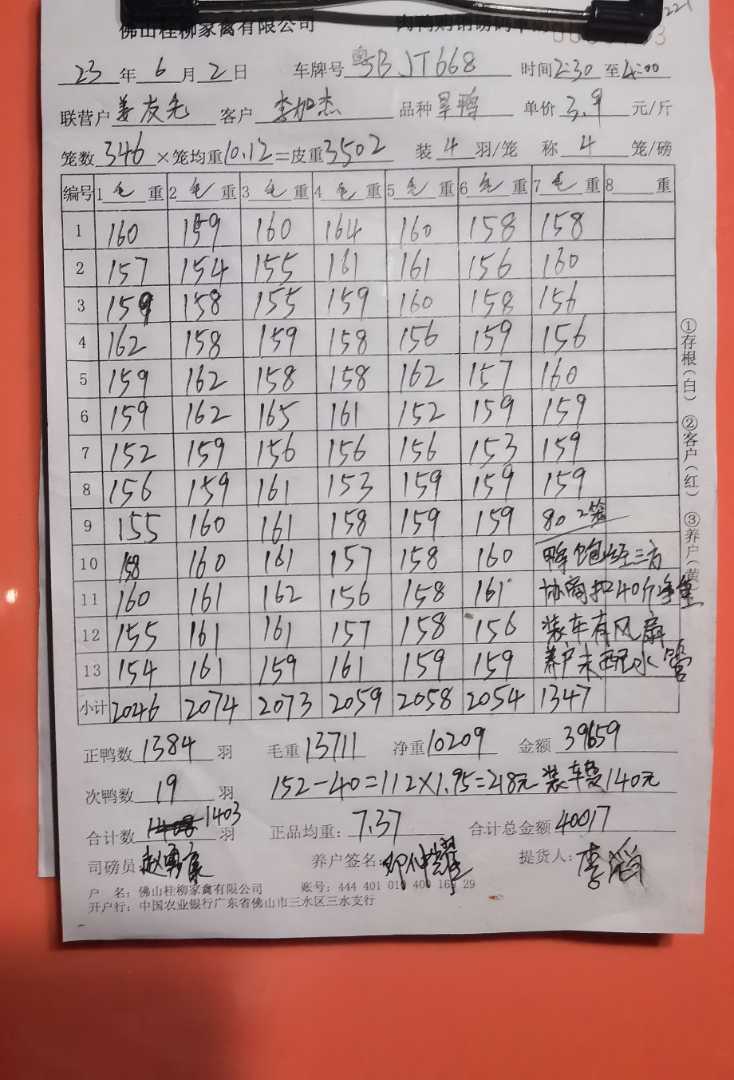 佛山桂柳家禽有限公司
221
23 年 6 月 2 日 车牌号 粤B JT668 时间 2:30 至 4:00
联营户 姜友先 客户 李加杰 品种 旱鸭 单价 3.9 元/斤
笼数 346 ×笼均重 10.12 =皮重 3502 装 4 羽/笼 称 4 笼/磅
编号 1 毛 重 2 毛 重 3 毛 重 4 毛 重 5 毛 重 6 毛 重 7 毛 重 8 重
1 160 159 160 164 160 158 158
2 157 154 155 161 161 156 160
3 159 158 155 159 160 158 156
4 162 158 159 158 156 159 156
5 159 162 158 158 162 157 160
6 159 162 165 161 152 159 159
7 152 159 156 156 156 153 159
8 156 159 161 153 159 159 159
9 155 160 161 158 159 159 80 2笼
10 158 160 161 157 158 160 鸭饱经三方
11 160 161 162 156 158 161 协商扣40斤净重
12 155 161 161 157 158 156 装车有风扇
13 154 161 159 161 159 159 养户未配水管
小计 2046 2074 2073 2059 2058 2054 1347
正鸭数 1384 羽 毛重 13711 净重 10209 金额 39659
次鸭数 19 羽 152-40=112×1.95=218元 装车费140元
合计数 1403 羽 正品均重: 7.37 合计总金额 40017
司磅员 养户签名: 提货人: 李滔
户 名: 佛山桂柳家禽有限公司 账号: 444 401 010 400 169 29
开户行: 中国农业银行广东省佛山市三水区三水支行
①存根(白) ②客户(红) ③养户(黄)